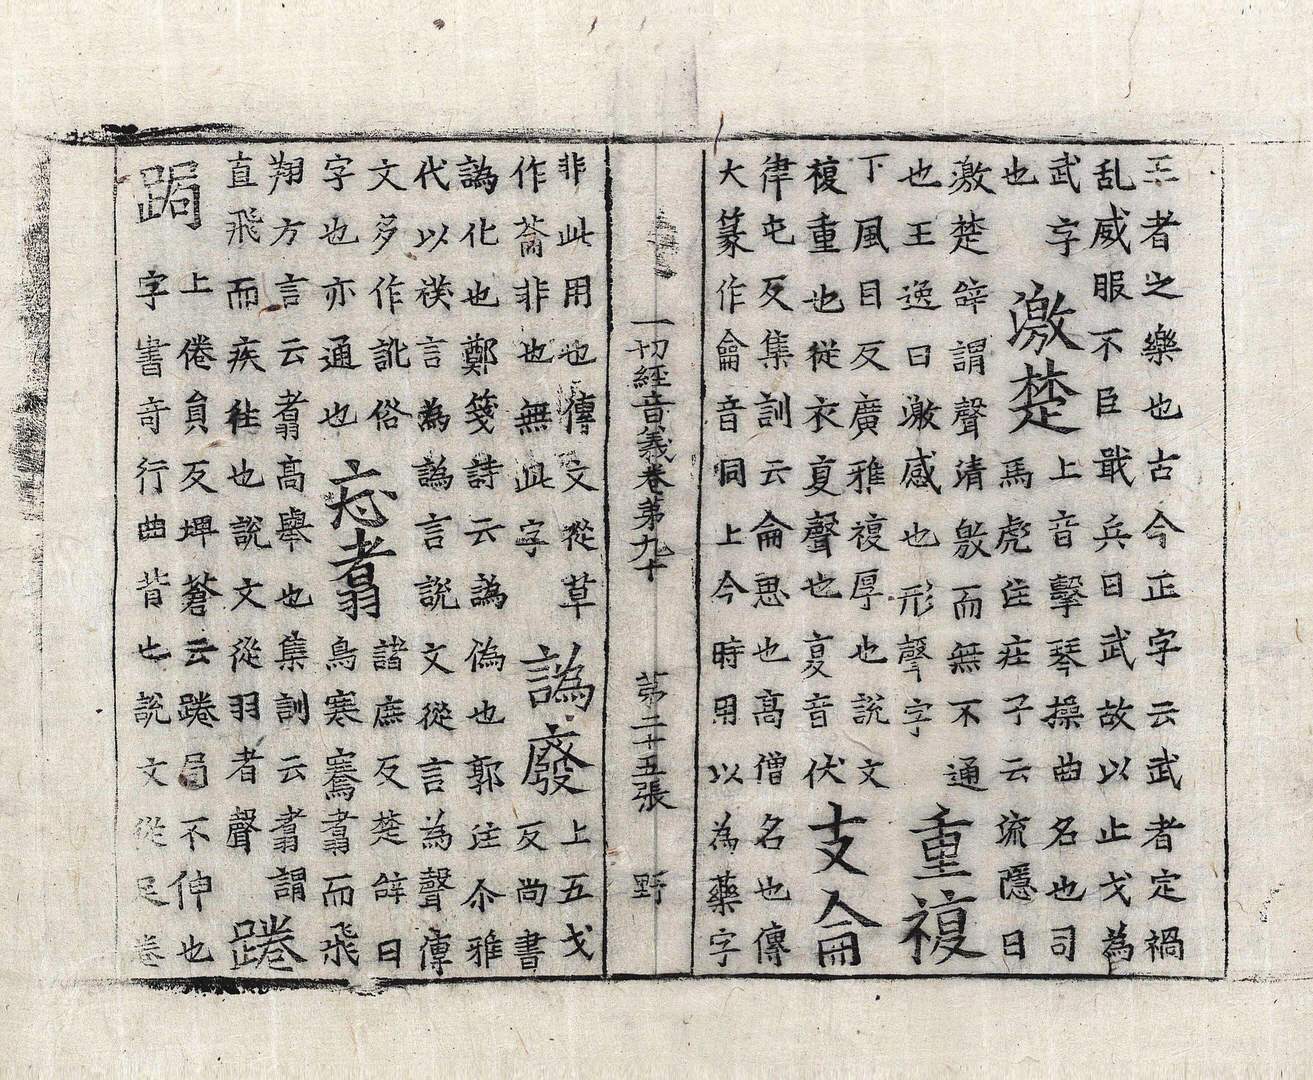 王者之樂也古今正字云武者定禍
乱威服不臣戢兵曰武故以止戈為
武字
也
激楚
上音擊琴操曲名也司
馬彪注莊子云流隱曰
激楚辝謂聲清敫而無不通
也王逸曰激感也形聲字
重複
下風目反廣雅複厚也說文
複重也從衣夏聲也夏音伏
支侖
律屯反集訓云侖思也高僧名也傳
大篆作龠音同上今時用以為藥字
一切經音義卷第九十 第二十五張 野
非此用也傳文從草
作蕎非也無此字
譌廢
上五戈
反尚書
譌化也鄭箋詩云譌偽也郭注尒雅
代以禖言為譌言說文從言為聲傳
文多作訛俗
字也亦通也
翥
諸庶反楚辝曰
鳥寒騫翥而飛
翔方言云翥高舉也集訓云翥謂
直飛而疾往也說文從羽者聲
踡
跼
上倦員反埤蒼云踡局不伸也
字書竒行曲背也說文從足卷